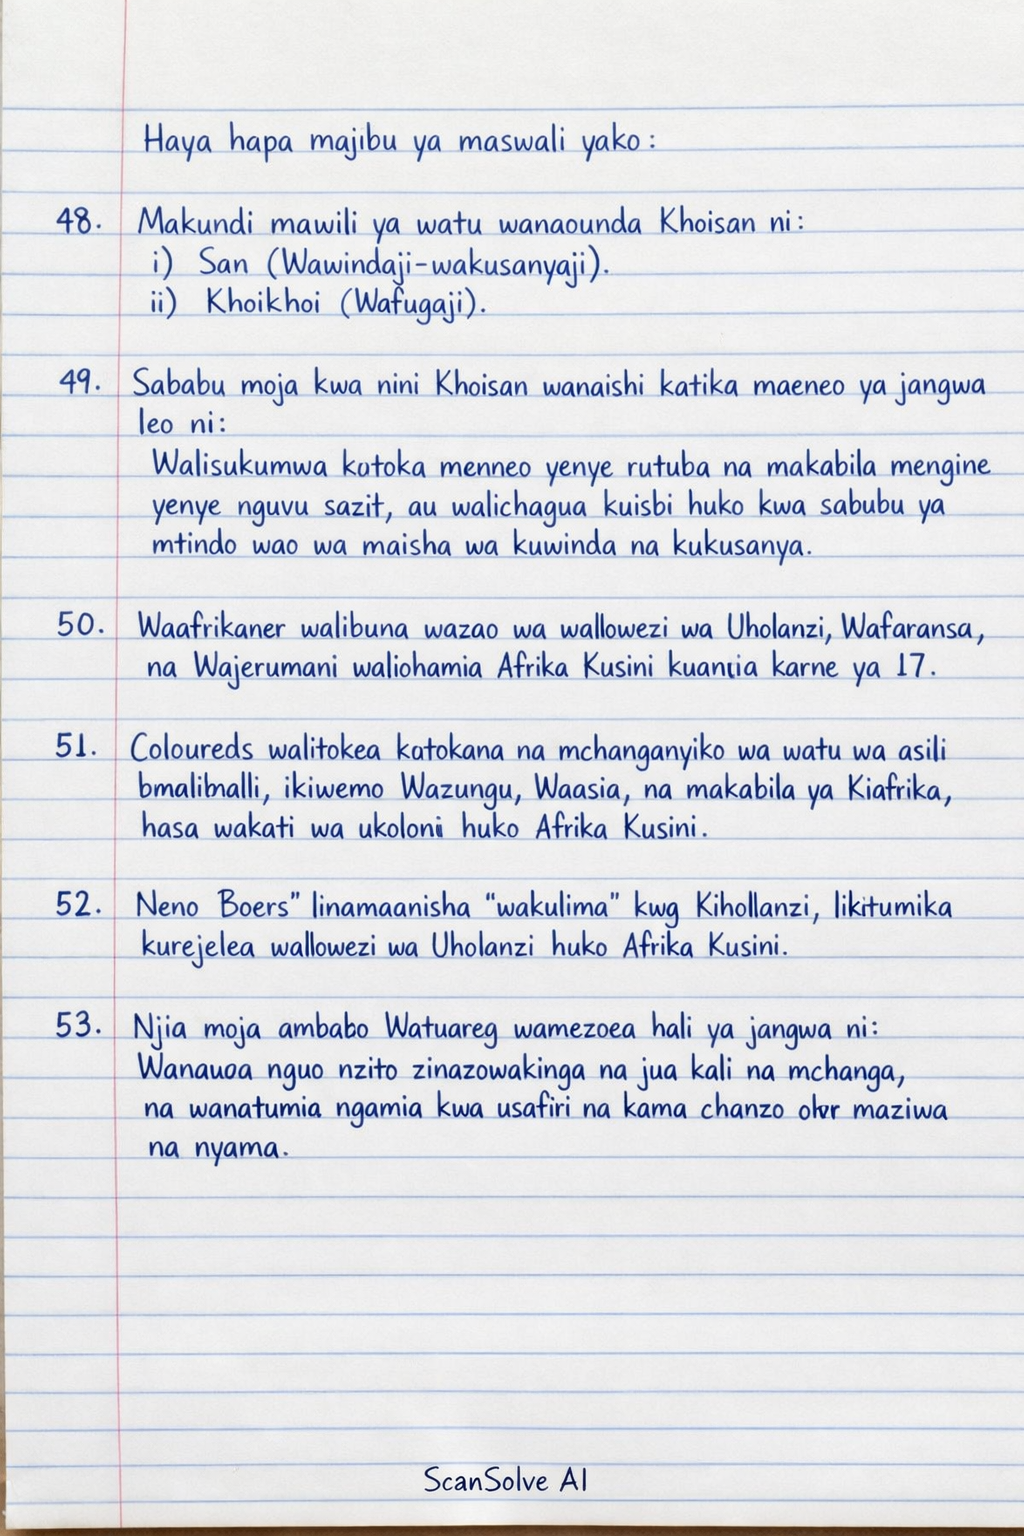 Haya hapa majibu ya maswali yako:
48. Makundi mawili ya watu wanaounda Khoisan ni:
i) San (Wawindaji-wakusanyaji).
ii) Khoikhoi (Wafugaji).
49. Sababu moja kwa nini Khoisan wanaishi katika maeneo ya jangwa
leo ni:
Walisukumwa kutoka menneo yenye rutuba na makabila mengine
yenye nguvu sazit, au walichagua kuisbi huko kwa sabubu ya
mtindo wao wa maisha wa kuwinda na kukusanya.
50. Waafrikaner walibuna wazao wa wallowezi wa Uholanzi, Wafaransa,
na Wajerumani waliohamia Afrika Kusini karne ya 17.
51. Coloureds walitokea katokana na mchanganyiko wa watu wa asili
bmalibnalli, ikiwemo Wazungu, Waasia, na makabila ya Kiafrika,
hasa wakati wa ukoloni huko Afrika Kusini.
52. Neno Boers" linamaanisha "wakulima" kwg Kihollanzi, likitumika
kurejelea wallowezi wa Uholanzi huko Afrika Kusini.
53. Njia moja ambabo Watuareg wamezoea hali ya jangwa ni:
nguo nzito zinazowakinga na jua kali na mchanga,
na wanatumia ngamia kwa usafiri na kama chanzo maziwa
na nyama.
ScanSolve AI